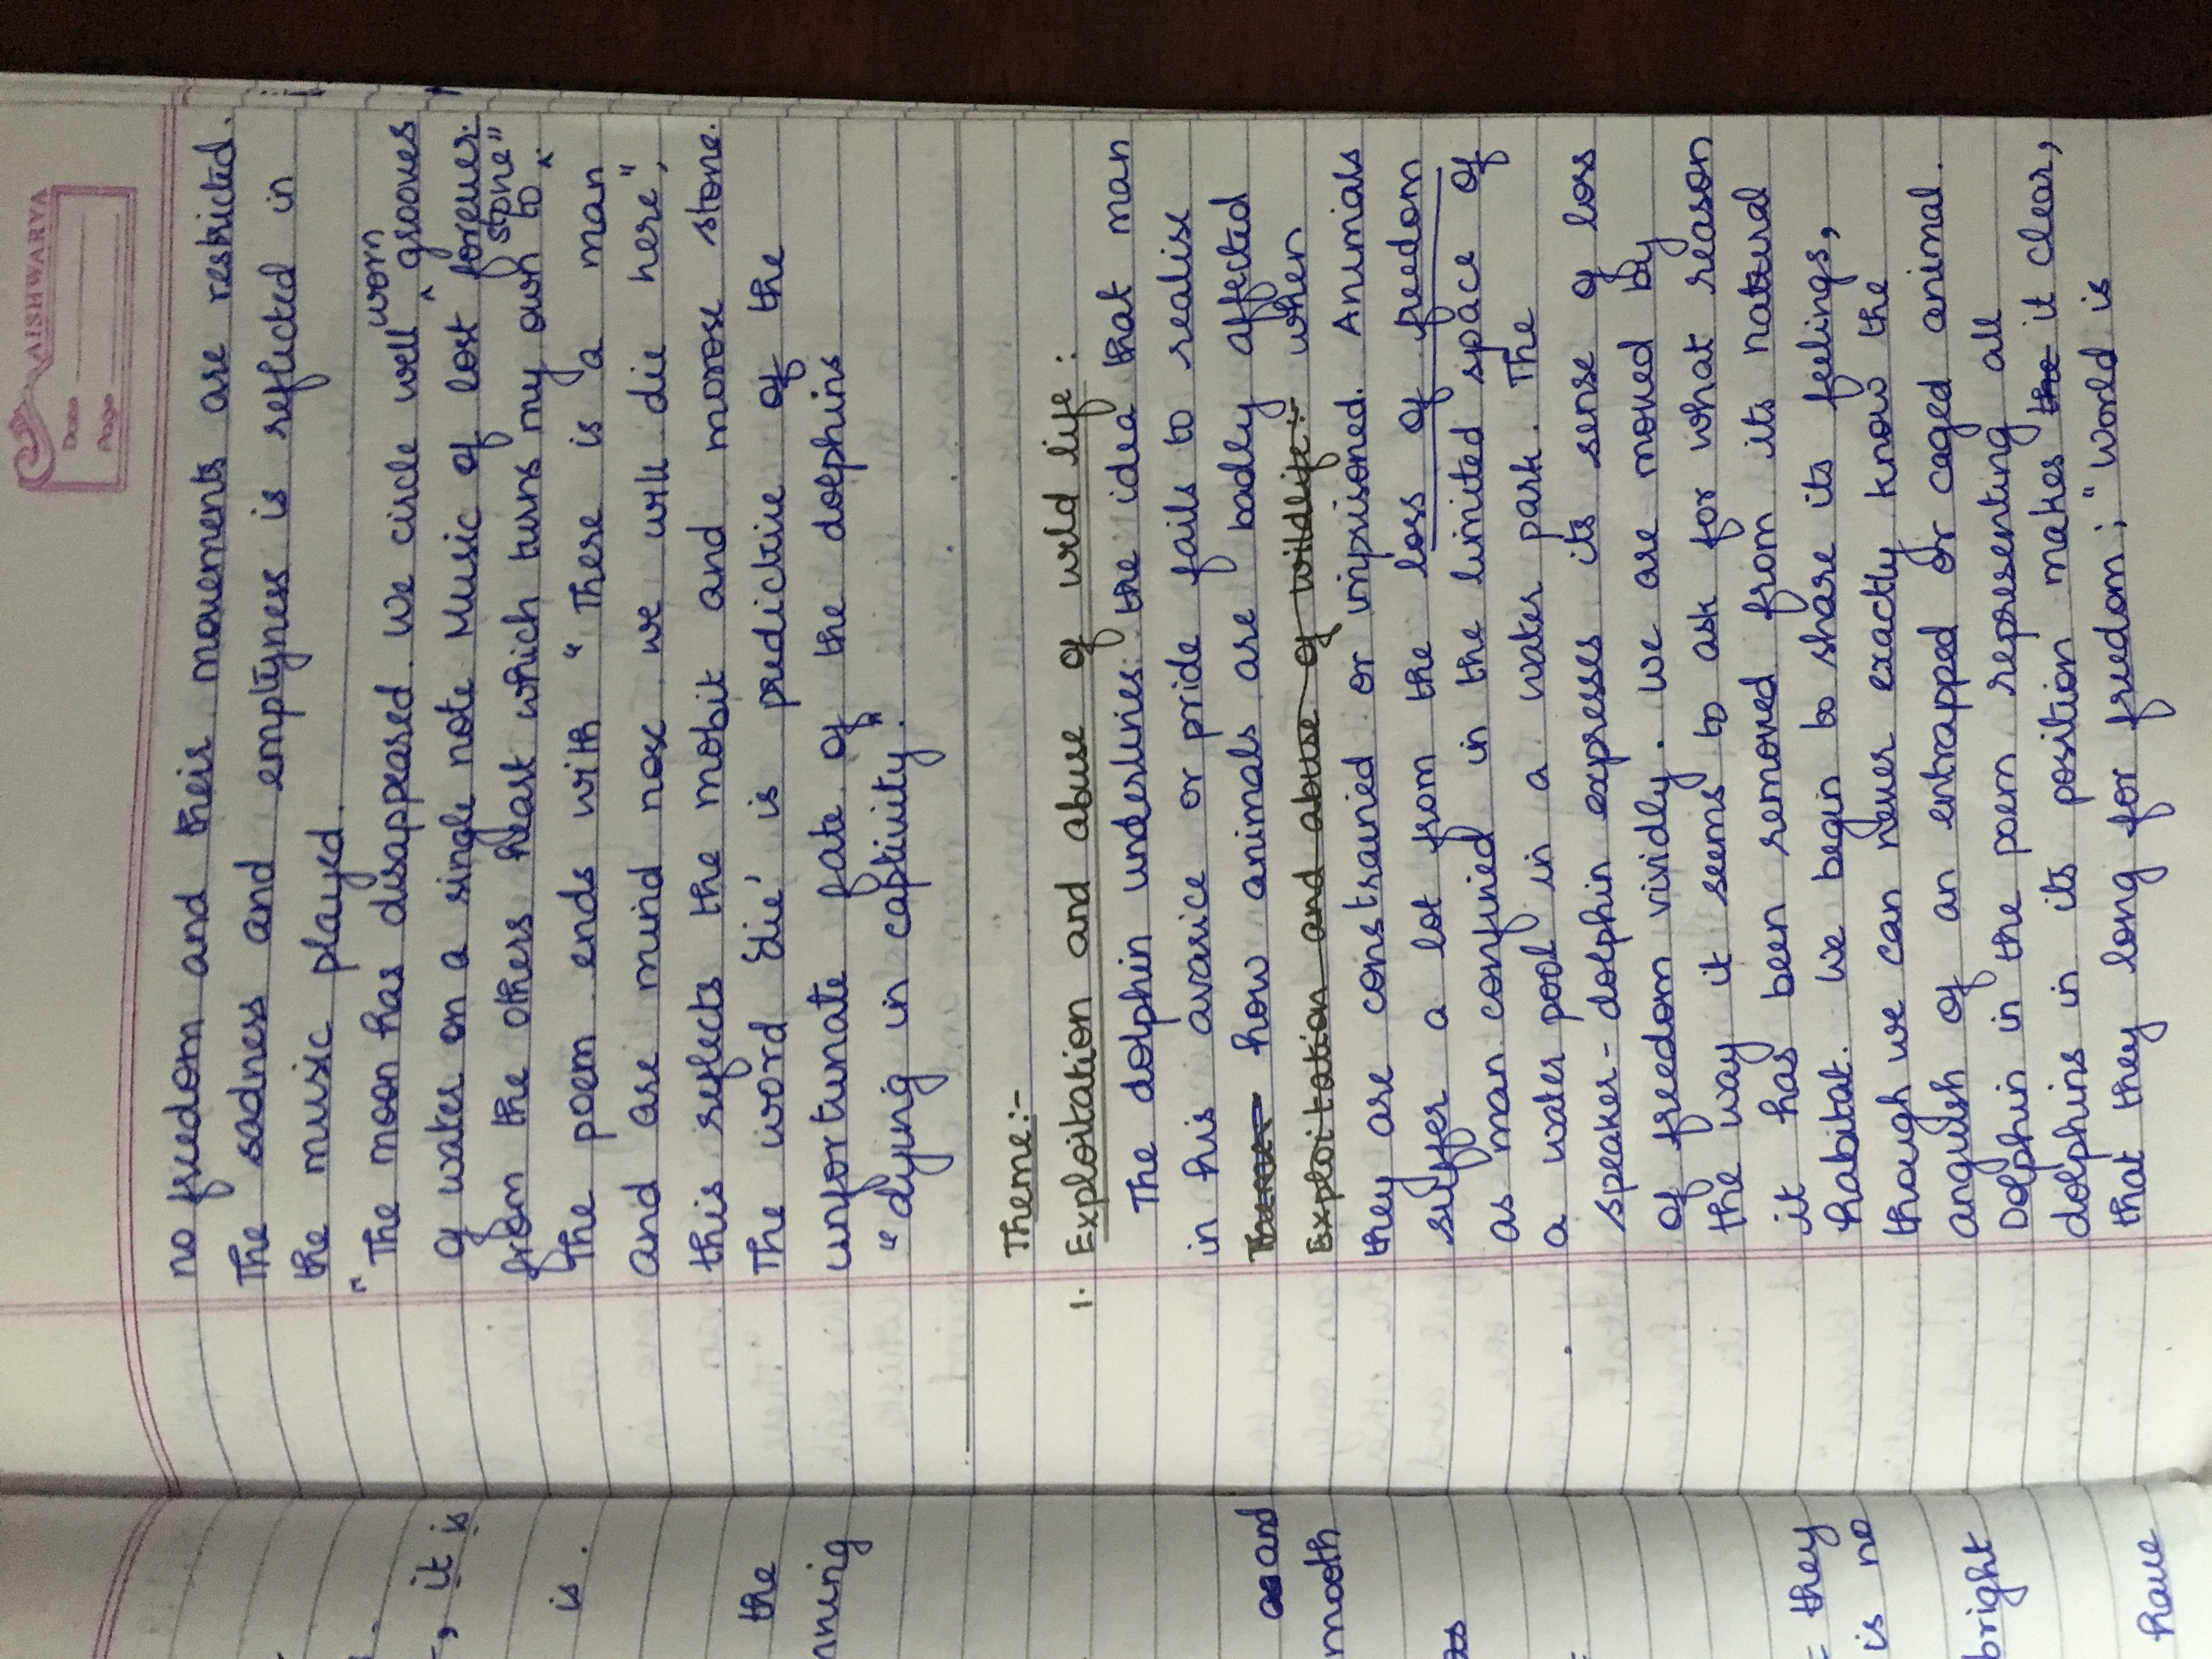 AISHWARYA
Date
Page
no freedom and their movements are restricted.
The sadness and emptyness is reflected in
the music played.
"The moon has disappeared. We circle well worn grooves
of water on a single note Music of lost forever.
from the others heart which turns my own to stone"
The poem ends with "There is a man
and are mind nose we will die here",
this reflects the mobit and morose stone.
The word 'die' is predictive of the
unfortunate fate of the dolphins
"dying in captivity."
Theme:-
1. Exploitation and abuse of wild life:
The dolphin underlines the idea that man
in his avarice or pride fails to realise
Theme:- how animals are badly affected
Exploitation and abuse of wildlife:- when
they are constrained or imprisoned. Animals
suffer a lot from the loss of freedom
as man confined in the limited space of
a water pool in a water park. The
speaker-dolphin expresses its sense of loss
of freedom vividly. We are moved by
the way it seems to ask for what reason
it has been removed from its natural
habitat. We begin to share its feelings,
though we can never exactly know the
anguish of an entrapped or caged animal.
Dolphin in the poem representing all
dolphins in its position makes the it clear,
that they long for freedom; "World is
, it is
is.
the
nning
and
mooth
as
they
is no
bright
have